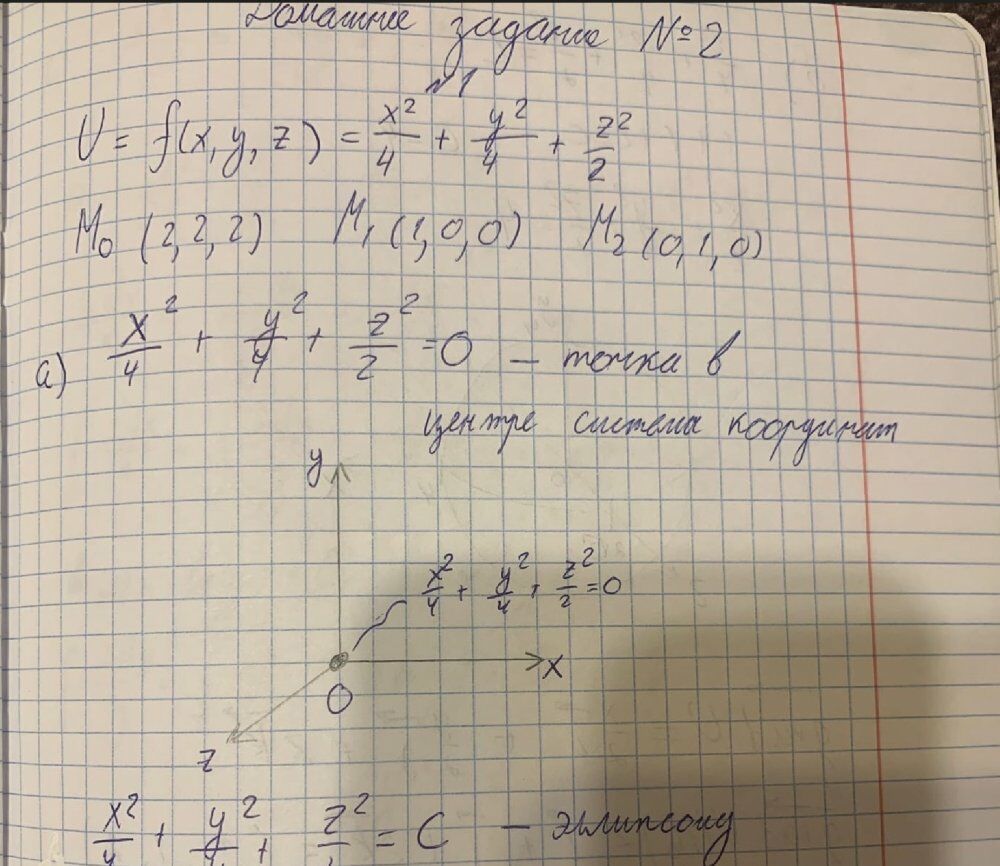 Домашнее задание №2
№1
U = f(x, y, z) = x²/4 + y²/4 + z²/2
M₀ (2, 2, 2) M₁ (1, 0, 0) M₂ (0, 1, 0)
a) x²/4 + y²/4 + z²/2 = 0 – точка в
центре система координат
y
x²/4 + y²/4 + z²/2 = 0
x
O
z
x²/4 + y²/4 + z²/ = C – эллипсоид